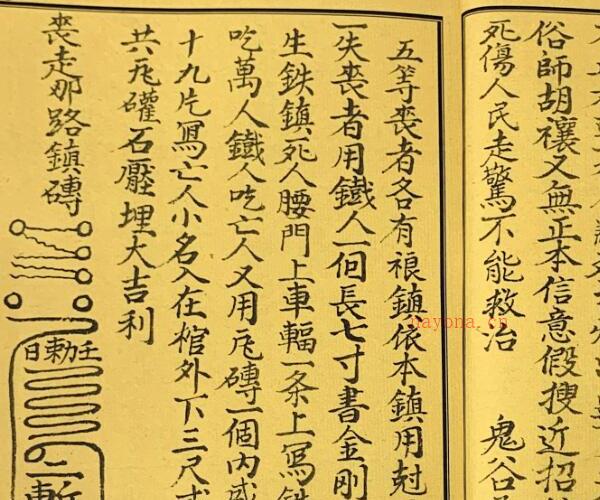 俗師胡禳又無正本信意假搜近招
死傷人民走驚不能救治 鬼谷
五等喪者各有禳鎮依本鎮用尅
一失喪者用鐵人一個長七寸書金剛
生鉄鎮死人腰門上車輻一条上寫鉄
吃萬人鐵人吃亡人又用瓦磚一個內盛
十九片寫亡人小名入在棺外下三尺
共瓦礶石壓埋大吉利
喪走那路鎮磚
壬勅東日
二斬
nayona.cn